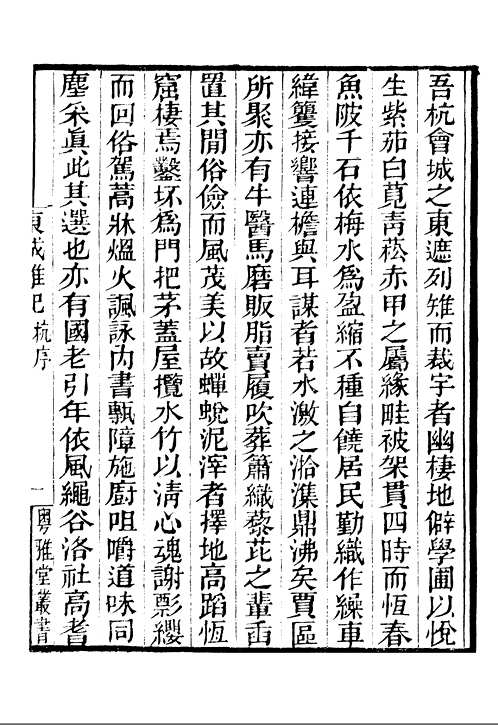 吾杭會城之東遮列雉而裁宇者幽棲地僻學圃以悅
生紫茄白莧靑菘赤甲之屬緣畦被架貫四時而恆春
魚陂千石依梅水爲盈縮不種自饒居民勤織作繰車
緯籆接響連檐與耳謀者若水激之湁潗鼎沸矣賈區
所聚亦有牛醫馬磨販脂賣履吹葬簫織藜芘之輩臿
置其閒俗儉而風茂美以故蟬蛻泥滓者擇地高蹈恆
窟棲焉鑿坏爲門把茅蓋屋攬水竹以淸心魂謝影纓
而回俗駕蒿牀熅火諷詠內書瓻障施廚咀嚼道味同
塵采眞此其選也亦有國老引年依風繩谷洛社高耆
東城雜記 杭序
一
粵雅堂叢書